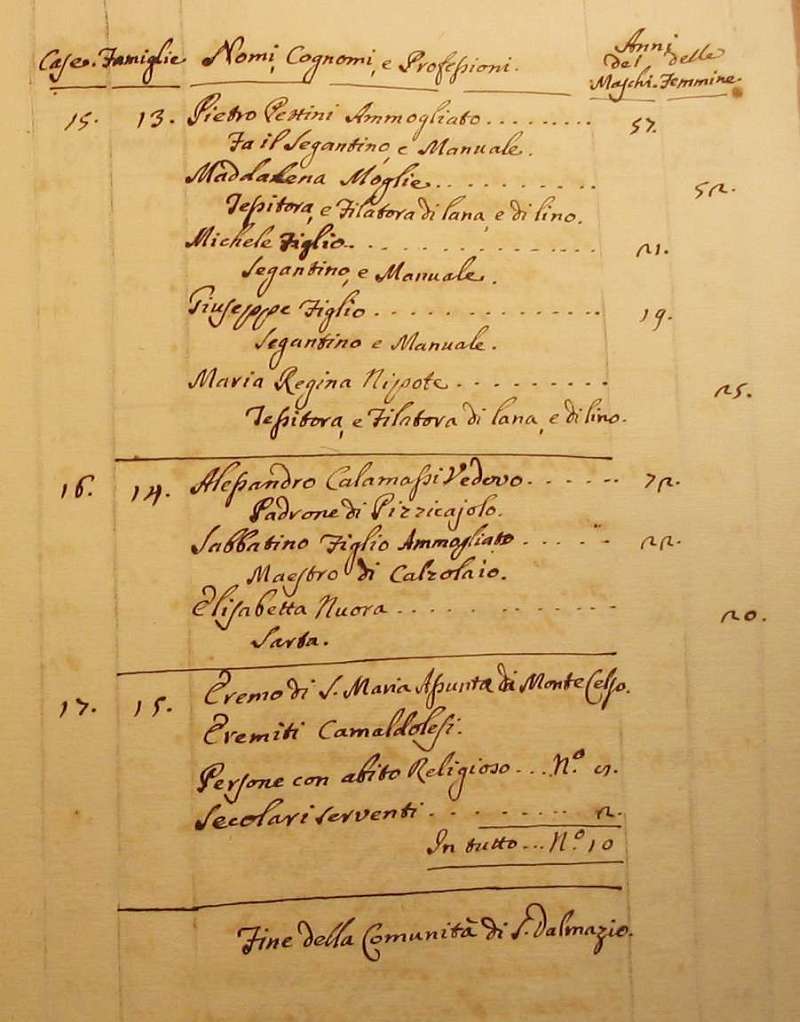 Case. Famiglie Nomi, Cognomi, e Professioni. Anni
del delle
Maschi. Femmine.
15. 13. Pietro Ammogliato......... 57.
Fa il Segantino, e Manuale.
Maddalena Moglie.......... 52.
Tessitora, e Filatora di lana, e di lino.
Michele Figlio............. 21.
Segantino, e Manuale.
Giuseppe Figlio............. 19.
Segantino e Manuale.
Maria Regina Nipote......... 25.
Tessitora, e Filatora di lana, e di lino.
16. 14. Alessandro Calamassi Vedovo...... 72.
Padrone di Pizzicajolo.
Sabbatino Figlio Ammogliato..... 22.
Maestro di Calzolaio.
Elisabetta Nuora........... 20.
Sarta.
17. 15. Eremo di S. Maria Assunta di Monte Celso.
Eremiti Camaldolesi.
Persone con abito Religioso... N.º 8.
Secolari serventi.......... 2.
In tutto... N.º 10
Fine della Comunità di S. Dalmazio.